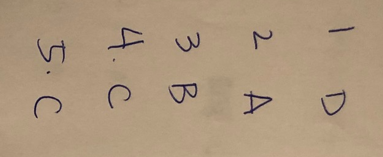 1 D
2 A
3 B
4. C
5. C